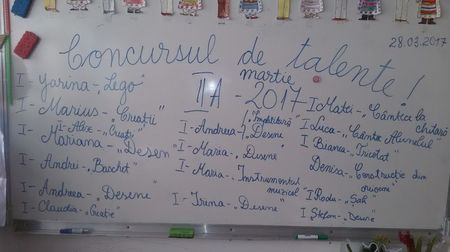 28.03.2017
Concursul de talente!
martie
II A - 2017
I - Yarina - „Lego"
I - Marius - „Creații"
I - Alex - „Creații"
Mariana - „Desen
I - Andrei - „Baschet"
I - Andreea - „Desene"
I - Claudia - „Creație"
împletitură"
I - Andreea - „Desene"
I - Maria - „Desene"
I - Maria - „Instrumentul
muzical"
I - Irina - „Desene"
I Matei - „Cântec la
chitară
I Luca - „Cântec Alunelul"
I Bianca - „Tricotat"
Denisa - „Construcție din
I Radu - „Șah"
I Ștefan - „Desene"